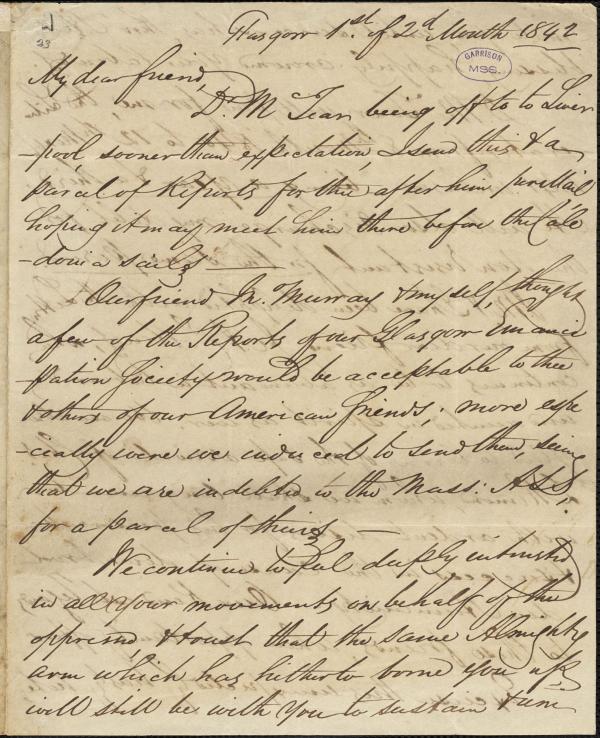 Glasgow 1st. of 2d. Month 1842
GARRISON
MSS.
My dear friend,
Dr. McTear being off to to Liver
-pool, sooner than expectation, I send this & a
parcel of Reports for thee after him, per Mail
hoping it may meet him there before the Cale
-donia sails —
Our friend Jn. Murray & myself, thought
a few of the Reports of our Glasgow Emanci
-pation Society would be acceptable to thee
& others of our American friends; more espe
-cially were we induced to send them, seeing
that we are indebted to the Mass: A.S.S.
for a parcel of theirs —
We continue to feel deeply interested
in all your movements on behalf of the
oppressed, & trust that the same Almighty
arm which has hitherto borne you up,
will still be with you to sustain &